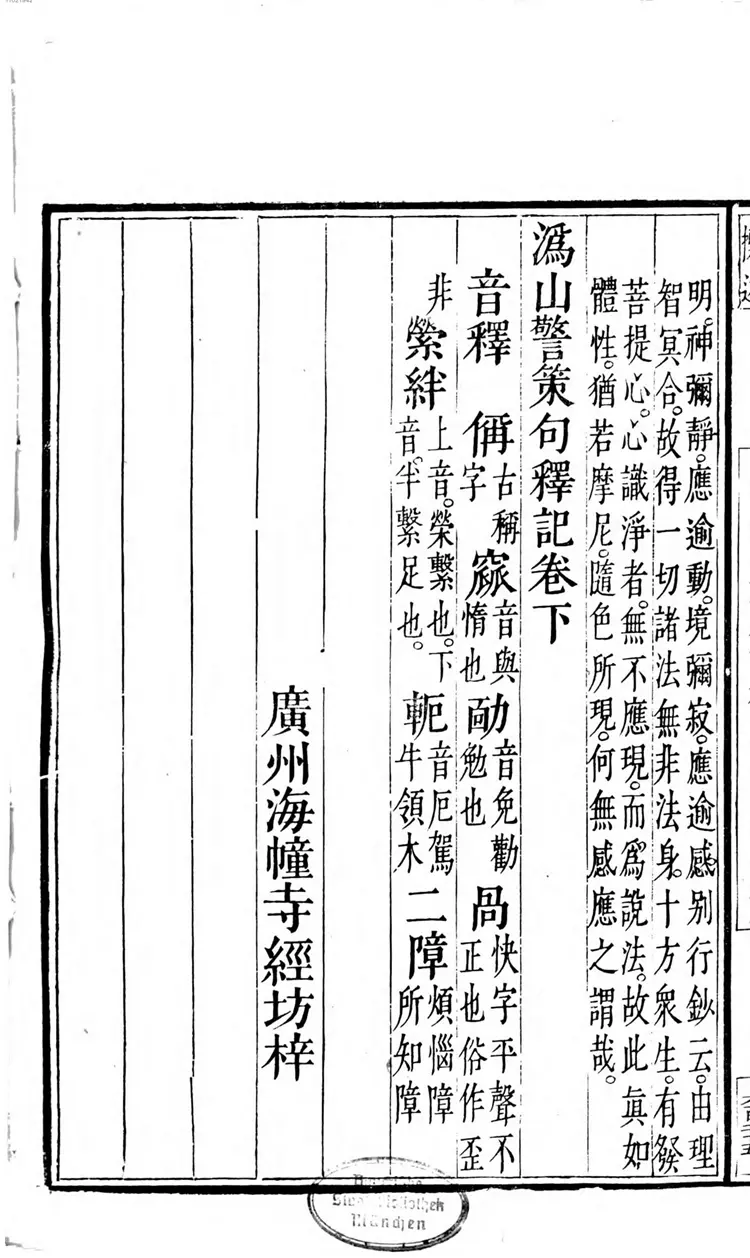 明。神彌靜。應逾動。境彌寂。應逾感。别行鈔云。由理
智冥合。故得一切諸法無非法身。十方衆生。有發
菩提心。心識淨者。無不應現。而爲說法。故此眞如
體性。猶若摩尼。隨色所現。何無感應之謂哉。
溈山警策句釋記卷下
音釋 偁 古稱字 窳 音與惰也 勔 音免勸勉也 咼 快字平聲不正也俗作歪
非 縈絆 上音。榮繫也。下音。半繫足也。 軛 音厄駕牛領木 二障 煩惱障所知障
廣州海幢寺經坊梓
Staatsbibliothek
München